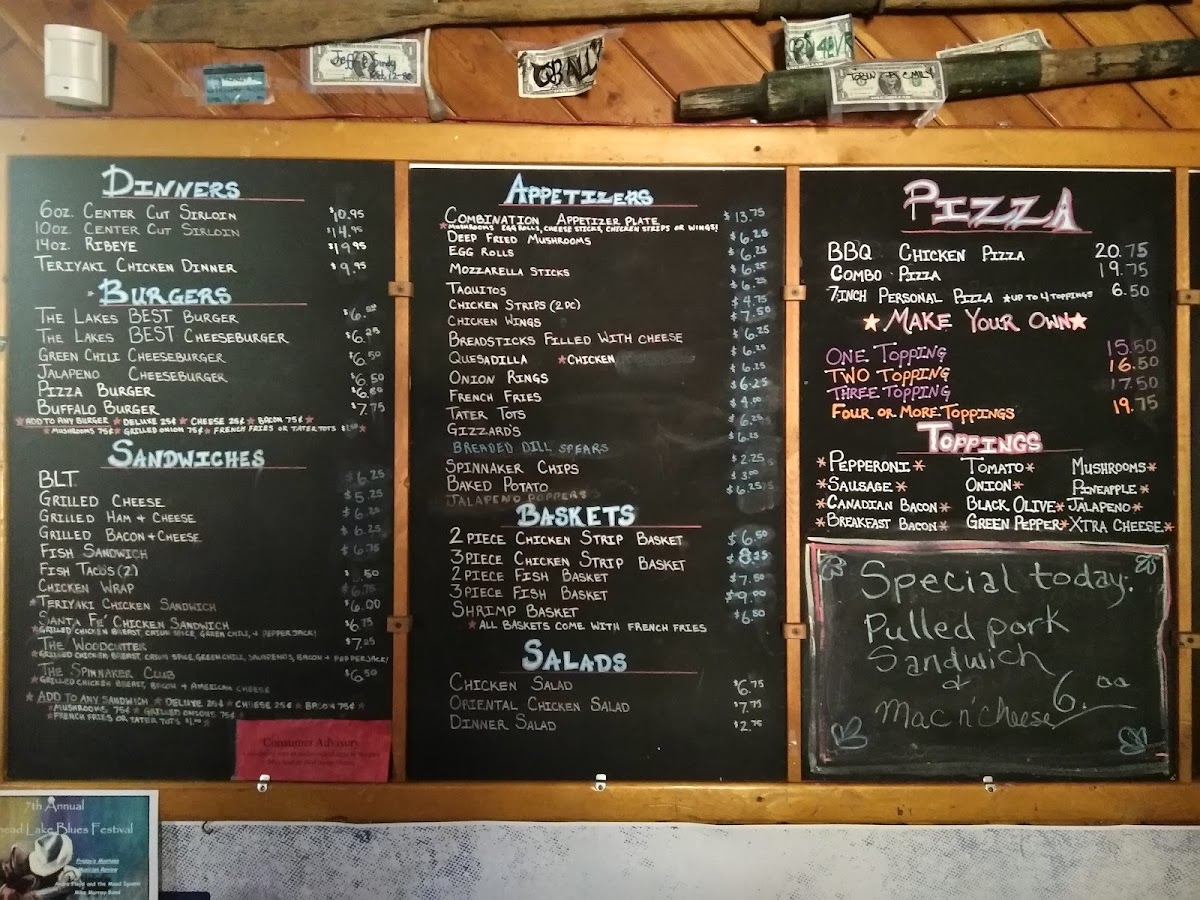 Jeff & Sindy
QBALL
TOBIN & EMILY
DINNERS
6oz. CENTER CUT SIRLOIN $10.95
10oz. CENTER CUT SIRLOIN $14.95
14oz. RIBEYE $19.95
TERIYAKI CHICKEN DINNER $9.95
BURGERS
THE LAKES BEST BURGER $6.00
THE LAKES BEST CHEESEBURGER $6.25
GREEN CHILI CHEESEBURGER $6.50
JALAPENO CHEESEBURGER $6.50
PIZZA BURGER
BUFFALO BURGER $7.75
★ADD TO ANY BURGER ★DELUXE 25¢ ★ CHEESE 25¢ ★ BACON 75¢ ★
★MUSHROOMS 75¢ ★ GRILLED ONION 75¢ ★ FRENCH FRIES OR TATER TOTS
SANDWICHES
BLT $6.25
GRILLED CHEESE $5.25
GRILLED HAM + CHEESE $6.25
GRILLED BACON + CHEESE $6.25
FISH SANDWICH $6.75
FISH TACOS (2) .50
CHICKEN WRAP $6.75
★TERIYAKI CHICKEN SANDWICH $6.00
SANTA FE' CHICKEN SANDWICH $6.75
★GRILLED CHICKEN BREAST, CAJUN SPICE, GREEN CHILI, + PEPPERJACK!
THE WOODCUTTER $7.25
★GRILLED CHICKEN BREAST, CAJUN SPICE, GREEN CHILI, JALAPENOS, BACON + PEPPERJACK!
THE SPINNAKER CLUB $6.50
★GRILLED CHICKEN BREAST, BACON + AMERICAN CHEESE
★ ADD TO ANY SANDWICH ★ DELUXE 25¢ ★ CHEESE 25¢ ★ BACON 75¢ ★
★MUSHROOMS 75¢ ★ GRILLED ONIONS 75¢ ★
★FRENCH FRIES OR TATER TOTS $1.00 ★
Consumer Advisory
APPETIZERS
COMBINATION APPETIZER PLATE $13.75
★MUSHROOMS EGG ROLLS, CHEESE STICKS, CHICKEN STRIPS OR WINGS!
DEEP FRIED MUSHROOMS $6.25
EGG ROLLS $6.25
MOZZARELLA STICKS $6.25
TAQUITOS $6.25
CHICKEN STRIPS (2 PC) $4.75
CHICKEN WINGS $7.50
BREADSTICKS FILLED WITH CHEESE $6.25
QUESADILLA ★CHICKEN $6.25
ONION RINGS $6.25
FRENCH FRIES $6.25
TATER TOTS $4.00
GIZZARD'S $6.25
BREADED DILL SPEARS $6.25
SPINNAKER CHIPS $2.25
BAKED POTATO $3.00
JALAPENO POPPERS $6.25
BASKETS
2 PIECE CHICKEN STRIP BASKET $6.50
3 PIECE CHICKEN STRIP BASKET $8.25
2 PIECE FISH BASKET $7.50
3 PIECE FISH BASKET $9.00
SHRIMP BASKET $6.50
★ALL BASKETS COME WITH FRENCH FRIES
SALADS
CHICKEN SALAD $6.75
ORIENTAL CHICKEN SALAD $7.75
DINNER SALAD $2.75
PIZZA
BBQ CHICKEN PIZZA 20.75
COMBO PIZZA 19.75
7-INCH PERSONAL PIZZA ★UP TO 4 TOPPINGS 6.50
★MAKE YOUR OWN★
ONE TOPPING 15.50
TWO TOPPING 16.50
THREE TOPPING 17.50
FOUR OR MORE TOPPINGS 19.75
TOPPINGS
*PEPPERONI* TOMATO* MUSHROOMS*
*SAUSAGE* ONION* PINEAPPLE*
*CANADIAN BACON* BLACK OLIVE* JALAPENO*
*BREAKFAST BACON* GREEN PEPPER* XTRA CHEESE*
Special today:
Pulled pork
Sandwich
&
Mac n' cheese 6.00
7th Annual
head Lake Blues Festival